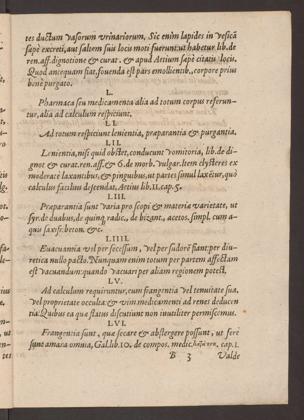 tes ductum vasorum vrinariorum, Sic enim lapides in vesicā
sapè excreti, aut saltem suis locis moti fuerunt: ut habetur lib. de
ren. aff. dignotione & curat. & apud Aetium sapè citatis locis.
Quod antequam fiat, fouenda est pars emollientib., corpore prius
benè purgato.
L.
Pharmaca seu medicamenta alia ad totum corpus referun-
tur, alia ad calculum respiciunt.
LI.
Ad totum respiciunt lenientia, præparantia & purgantia.
LII.
Lenientia, nisi quid obstet, conducunt vomitoria, lib. de di-
gnot & curat. ren. aff. & 6. de morb. vulgar. Item clysteres ex
moderatè laxantibus, & pinguibus, ut partes simul laxētur, quò
calculus facilius descendat, Aetius lib. 11. cap. 5.
LIII.
Præparantia sunt varia pro scopi & materiæ varietate, ut
syr. de duabus, de quinq. radic., de bizant., acetos. simpl. cum a-
quis saxifr. beton. &c.
LIIII.
Euacuantia vel per secessum, vel per sudorē fiant: per diu-
retica nullo pacto. Nunquam enim totum per partem affectam
est vacuandum: quando vacuari per aliam regionem potest.
LV.
Ad calculum requiruntur, cum frangentia vel tenuitate sua,
vel proprietate occulta: & vim medicamenti ad renes deducen
tia: Quibus ea quæ flatus discutiunt non inutiliter permiscemus.
LVI.
Frangentia sunt, quæ secare & abstergere possunt, ut ferè
sunt amara omnia, Gal. lib. 10. de compos. medic. cap. 1.
B 3 Valde